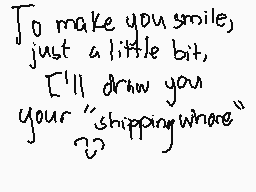 To make you smile,
just a little bit,
I'll draw you
your "shipping whore"